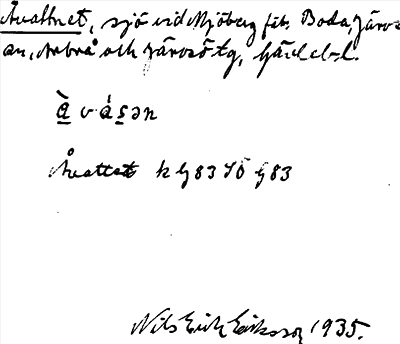 Åvattnet, sjö vid Mjöberg fäb. Boda, Järvsö
an, Nabrå och Järvsö tg, Gävleb. l.
à v á s ə n
Åvattet k G83 JÖ G 83
Nils Erik Eriksson 1935.